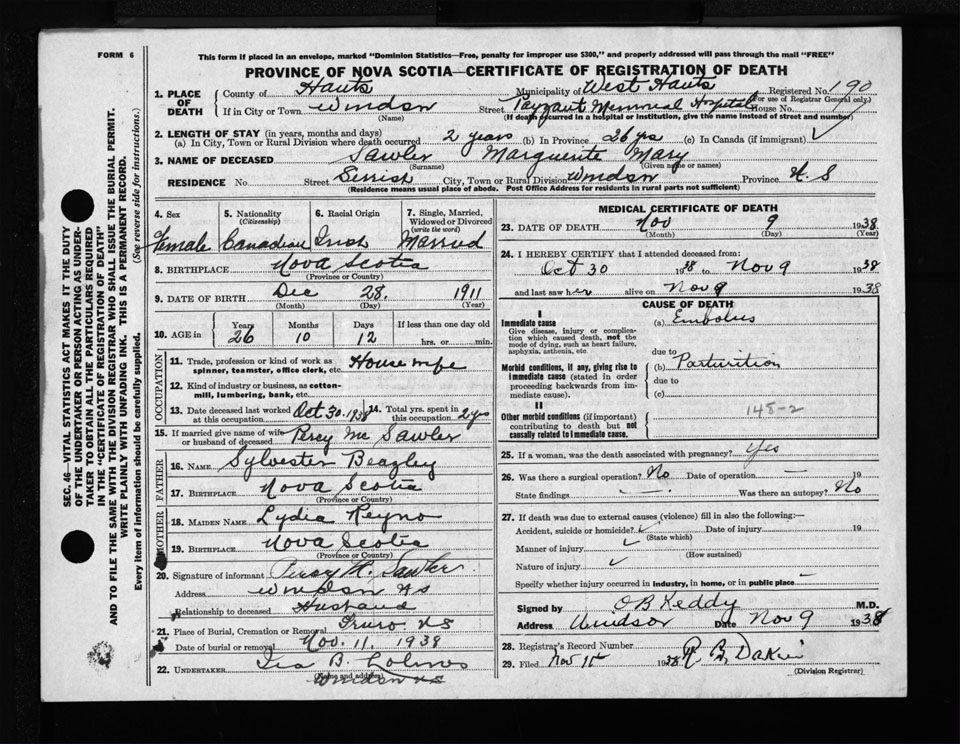 FORM 6
This form if placed in an envelope, marked "Dominion Statistics—Free, penalty for improper use $300," and properly addressed will pass through the mail "FREE"
PROVINCE OF NOVA SCOTIA—CERTIFICATE OF REGISTRATION OF DEATH
1. PLACE OF DEATH County of Hants Municipality of West Hants Registered No. 190
(For use of Registrar General only)
If in City or Town Windsor Street Payzant Memorial Hospital House No.
(Name) (If death occurred in a hospital or institution, give the name instead of street and number)
2. LENGTH OF STAY (in years, months and days)
(a) In City, Town or Rural Division where death occurred 2 years (b) in Province 26 yrs (c) In Canada (if immigrant)
3. NAME OF DECEASED Sawler Marguerite Mary
(Surname) (Given name or names)
RESIDENCE No. Street Gerrish City, Town or Rural Division Windsor Province N.S
(Residence means usual place of abode. Post Office Address for residents in rural parts not sufficient)
4. Sex 5. Nationality (Citizenship) 6. Racial Origin 7. Single, Married, Widowed or Divorced (write the word)
Female Canadian Irish Married
8. BIRTHPLACE Nova Scotia
(Province or Country)
9. DATE OF BIRTH Dec 28. 1911
(Month) (Day) (Year)
10. AGE in Years Months Days If less than one day old
26 10 12 hrs. or min.
OCCUPATION
11. Trade, profession or kind of work as spinner, teamster, office clerk, etc. House wife
12. Kind of industry or business, as cotton-mill, lumbering, bank, etc.
13. Date deceased last worked at this occupation Oct 30. 1938 14. Total yrs. spent in this occupation 2 yrs
15. If married give name of wife or husband of deceased Percy Mc Sawler
FATHER
16. NAME Sylvester Beazley
17. BIRTHPLACE Nova Scotia
(Province or Country)
MOTHER
18. MAIDEN NAME Lydia Reyno
19. BIRTHPLACE Nova Scotia
(Province or Country)
20. Signature of informant Percy H. Sawler
Address Windsor NS
Relationship to deceased Husband
21. Place of Burial, Cremation or Removal Truro. NS
Date of burial or removal Nov. 11. 1938
22. UNDERTAKER Ira B. Lohnes
(Name and address) Windsor NS
MEDICAL CERTIFICATE OF DEATH
23. DATE OF DEATH Nov 9 1938
(Month) (Day) (Year)
24. I HEREBY CERTIFY that I attended deceased from:
Oct 30 1938 to Nov 9 1938
and last saw her alive on Nov 9 1938
CAUSE OF DEATH
I
Immediate cause (a) Embolus
Give disease, injury or complication which caused death, not the mode of dying, such as heart failure, asphyxia, asthenia, etc.
due to
Morbid conditions, if any, giving rise to immediate cause (stated in order proceeding backwards from immediate cause). (b) Parturition
due to
(c)
II
148-2
Other morbid conditions (if important) contributing to death but not causally related to immediate cause.
25. If a woman, was the death associated with pregnancy? Yes
26. Was there a surgical operation? No Date of operation — 19
State findings — Was there an autopsy? No
27. If death was due to external causes (violence) fill in also the following:—
Accident, suicide or homicide? Date of injury 19
(State which)
Manner of injury
(How sustained)
Nature of injury
Specify whether injury occurred in industry, in home, or in public place —
Signed by O B Keddy M.D.
Address Windsor Date Nov 9 1938
28. Registrar's Record Number
29. Filed Nov 1938
(Division Registrar)
SEC. 46—VITAL STATISTICS ACT MAKES IT THE DUTY OF THE UNDERTAKER OR PERSON ACTING AS UNDERTAKER TO OBTAIN ALL THE PARTICULARS REQUIRED IN THE "CERTIFICATE OF REGISTRATION OF DEATH"
AND TO FILE THE SAME WITH THE DIVISION REGISTRAR WHO SHALL ISSUE THE BURIAL PERMIT.
WRITE PLAINLY WITH UNFADING INK. THIS IS A PERMANENT RECORD.
Every item of information should be carefully supplied. (See reverse side for instructions.)